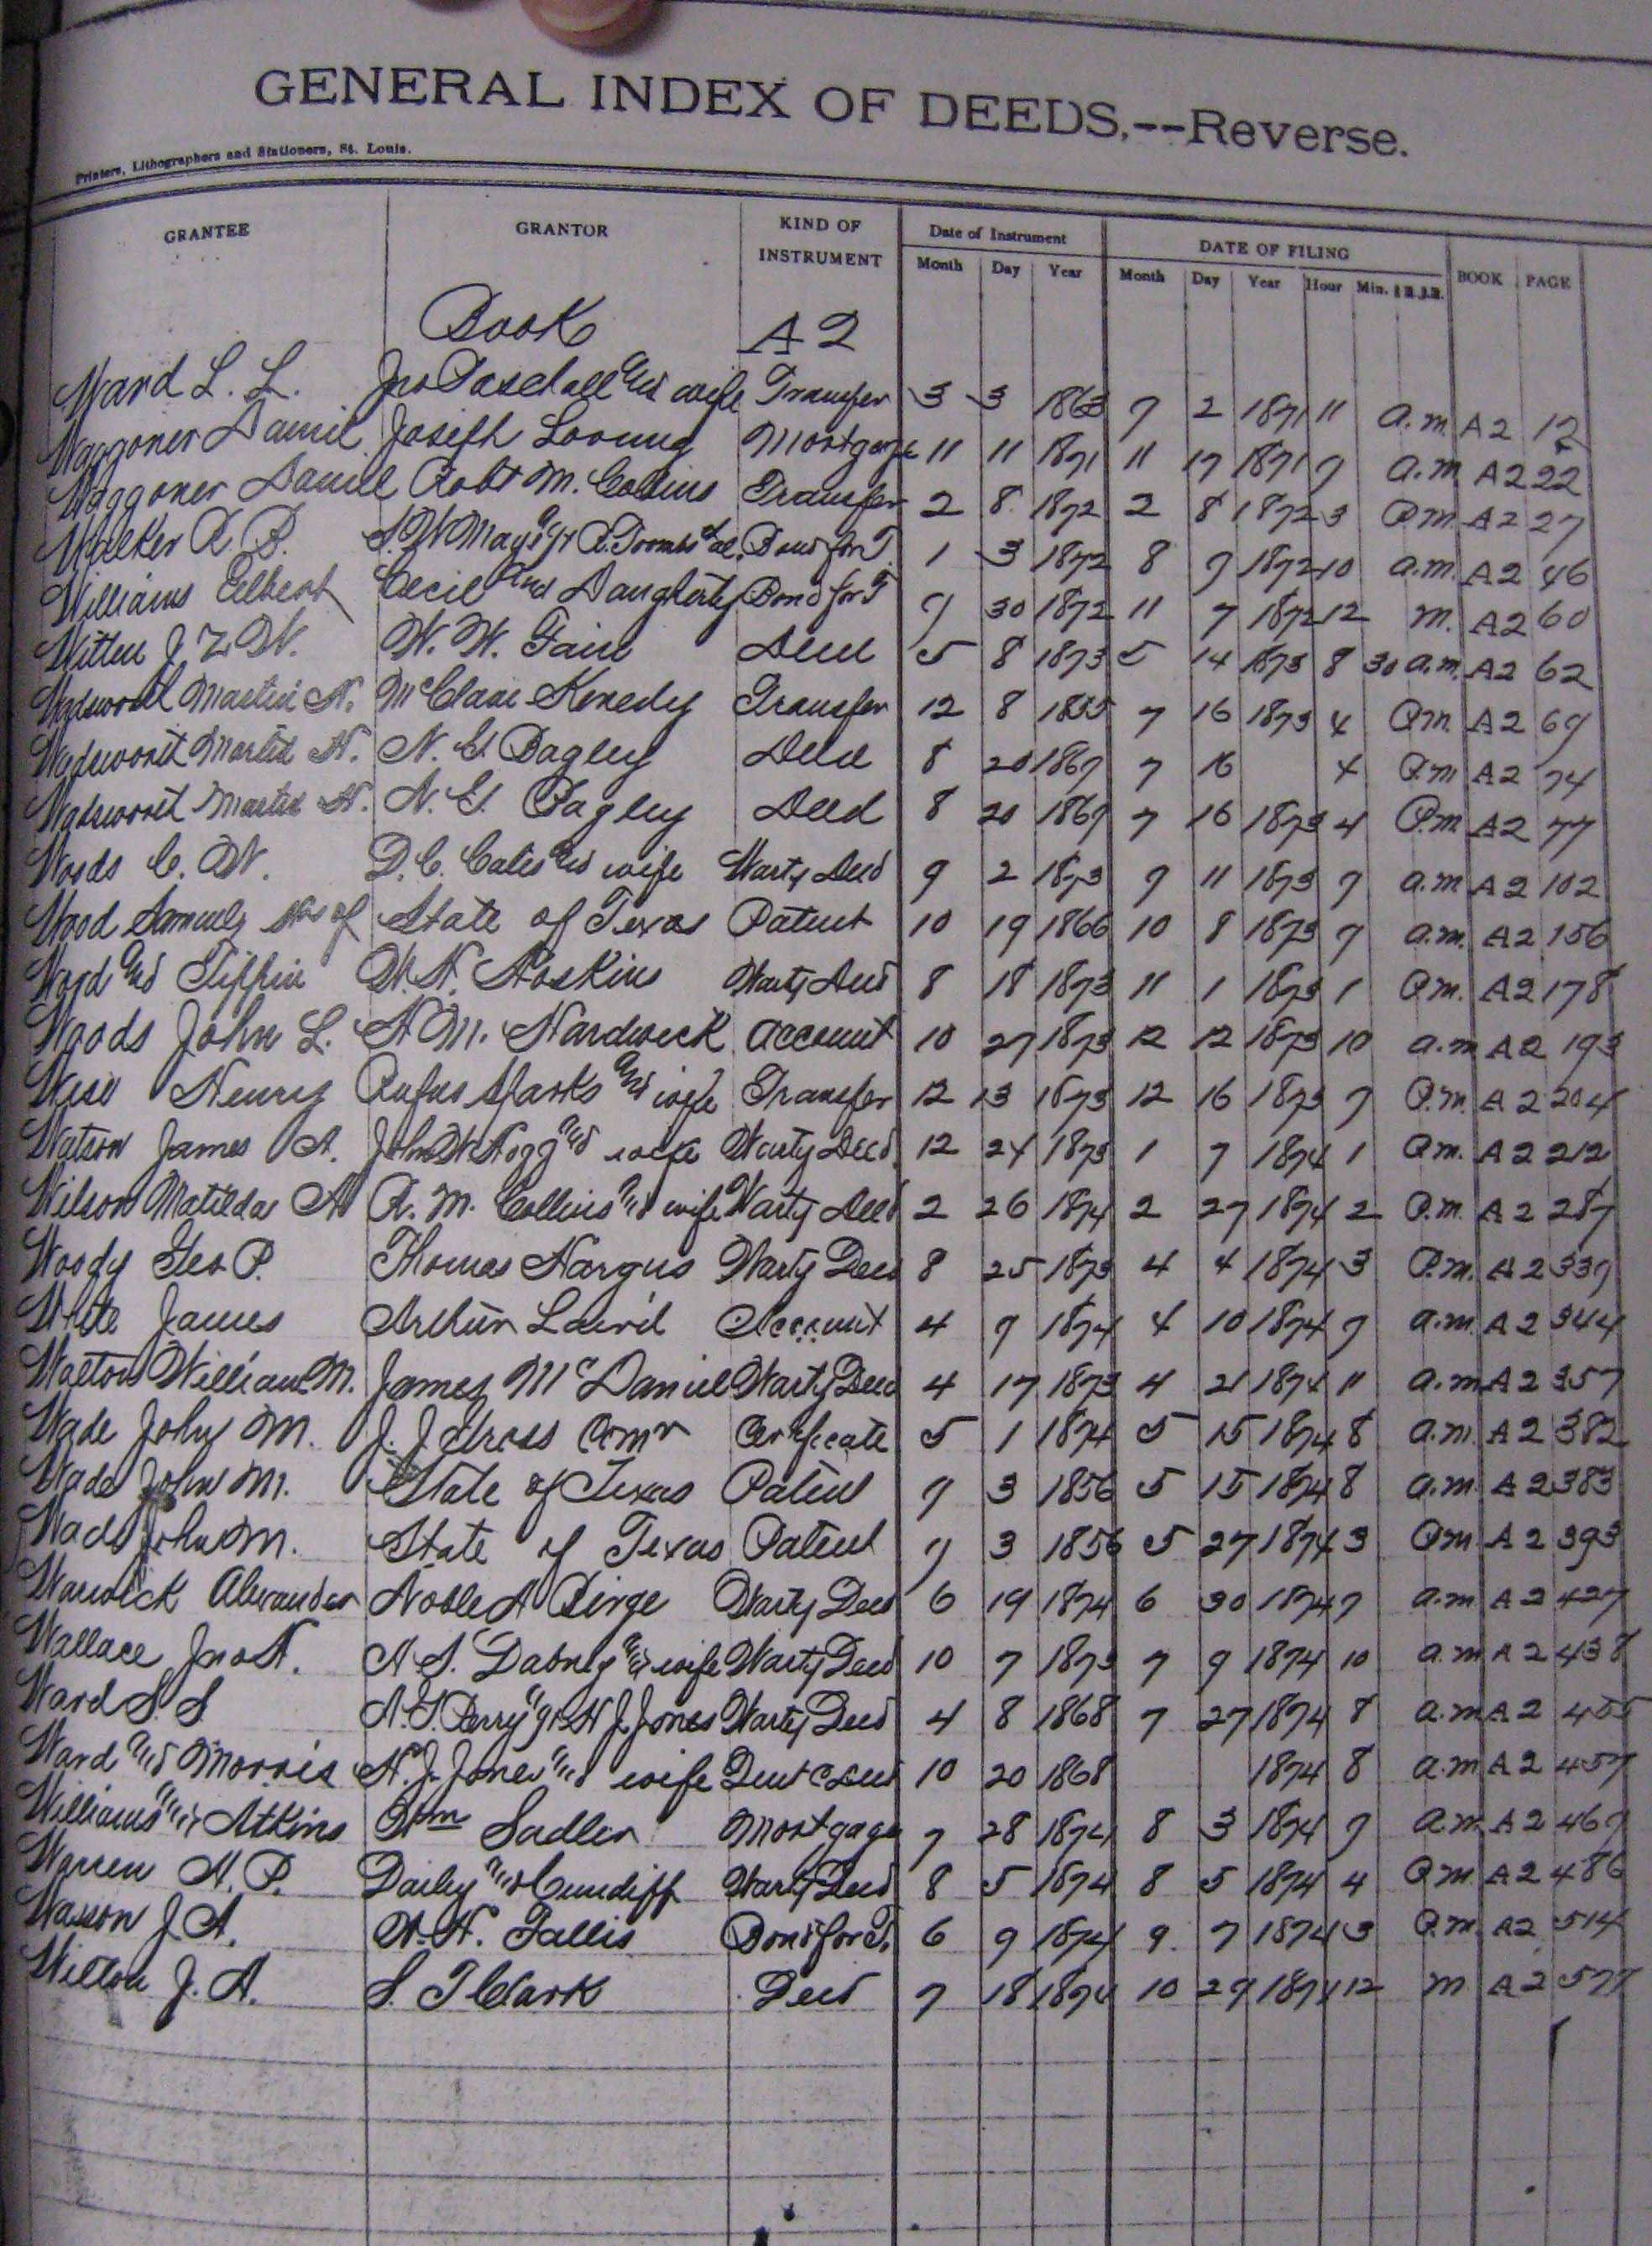 GENERAL INDEX OF DEEDS,--Reverse.
Printers, Lithographers and Stationers, St. Louis.
GRANTEE GRANTOR KIND OF INSTRUMENT Date of Instrument DATE OF FILING BOOK PAGE
Month Day Year Month Day Year Hour Min.
Book A2
Ward L. L. Jno Paschall and wife Transfer 3 3 1863 7 2 1871 11 a.m. A2 12
Waggoner Daniel Joseph Loving Mortgage 11 11 1871 11 17 1871 9 a.m A2 22
Waggoner Daniel Robt M. Collins Transfer 2 8 1872 2 8 1872 3 P.m A2 27
Walker R. B. Bond for T. 1 3 1872 8 9 1872 10 a.m. A2 46
Williams Elbert Cecil and Daugherty Bond for T 9 30 1872 11 7 1872 12 m. A2 60
Witten J Z W. W. W. Fain Deed 5 8 1873 5 14 1873 8 30 a.m. A2 62
Wadsworth Martin H. McClane Kenedy Transfer 12 8 1855 7 16 1873 4 P.m. A2 69
Wadsworth Martin H. N. G. Bagley Deed 8 20 1869 7 16 4 P.m A2 74
Wadsworth Martin H. N. G. Bagley Deed 8 20 1869 7 16 1873 4 P.m. A2 77
Woods C. W. D. C. Cates and wife Warty Deed 9 2 1873 9 11 1873 9 a.m A2 102
Wood Samuel Hrs of State of Texas Patent 10 19 1866 10 8 1873 9 a.m. A2 156
Ward and Tiffin W. H. Hoskins Warty Deed 8 18 1873 11 1 1873 1 P.m. A2 178
Woods John L. H M. Hardwick account 10 27 1873 12 12 1873 10 a.m A2 193
Wise Henry Rufus Sparks and wife Transfer 12 13 1873 12 16 1873 9 P.m. A2 204
Watson James A. John W Hogg and wife Warty Deed. 12 24 1873 1 7 1874 1 P.m. A2 212
Wilson Matilda A R. M. Collins and wife Warty Deed 2 26 1874 2 27 1874 2 P.m. A2 287
Woody Geo P. Thomas Hargus Warty Deed 8 25 1873 4 4 1874 3 P.m. A2 339
White James Arthur Laird Account 4 9 1874 4 10 1874 9 a.m. A2 344
Walton William M. James McDaniel Warty Deed 4 17 1873 4 21 1874 11 a.m A2 357
Wade John M. J. J. Gross Comr Certificate 5 1 1874 5 15 1874 8 a.m. A2 382
Wade John M. State of Texas Patent 9 3 1856 5 15 1874 8 a.m. A2 383
Wade John M. State of Texas Patent 9 3 1856 5 27 1874 3 P.m A2 393
Warwick Alexander Noble A Birge Warty Deed 6 19 1874 6 30 1874 9 a.m A2 427
Wallace Jno H. A. S. Dabney and wife Warty Deed 10 7 1873 7 9 1874 10 a.m A2 438
Ward S. S Warty Deed 4 8 1868 7 27 1874 8 a.m A2 455
Ward and Morris H. J. Jones and wife 10 20 1868 1874 8 a.m A2 457
Williams and Atkins Wm Sadler Mortgage 7 28 1874 8 3 1874 9 a.m A2 469
Warren H. P. Dailey and Cundiff Warty Deed 8 5 1874 8 5 1874 4 P.m A2 486
Wasson J A. W. H. Fallis Bond for T. 6 9 1874 9 7 1874 3 P.m. A2 514
J. A. S. T Clark Deed 7 18 1874 10 29 1874 12 m A2